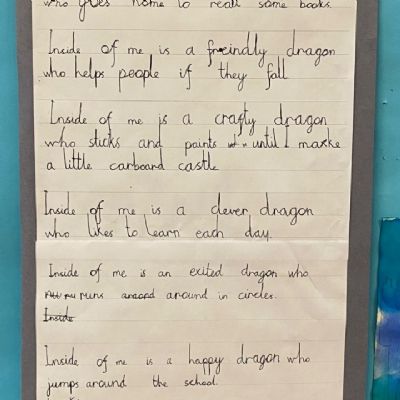 who goes home to read some books.
Inside of me is a freindly dragon
who helps people if they fall
Inside of me is a crafty dragon
who sticks and paints until I marke
a little carboard castle
Inside of me is a clever dragon
who likes to learn each day.
Inside of me is an exited dragon who
runs around around in circles.
Inside
Inside of me is a happy dragon who
jumps around the school.